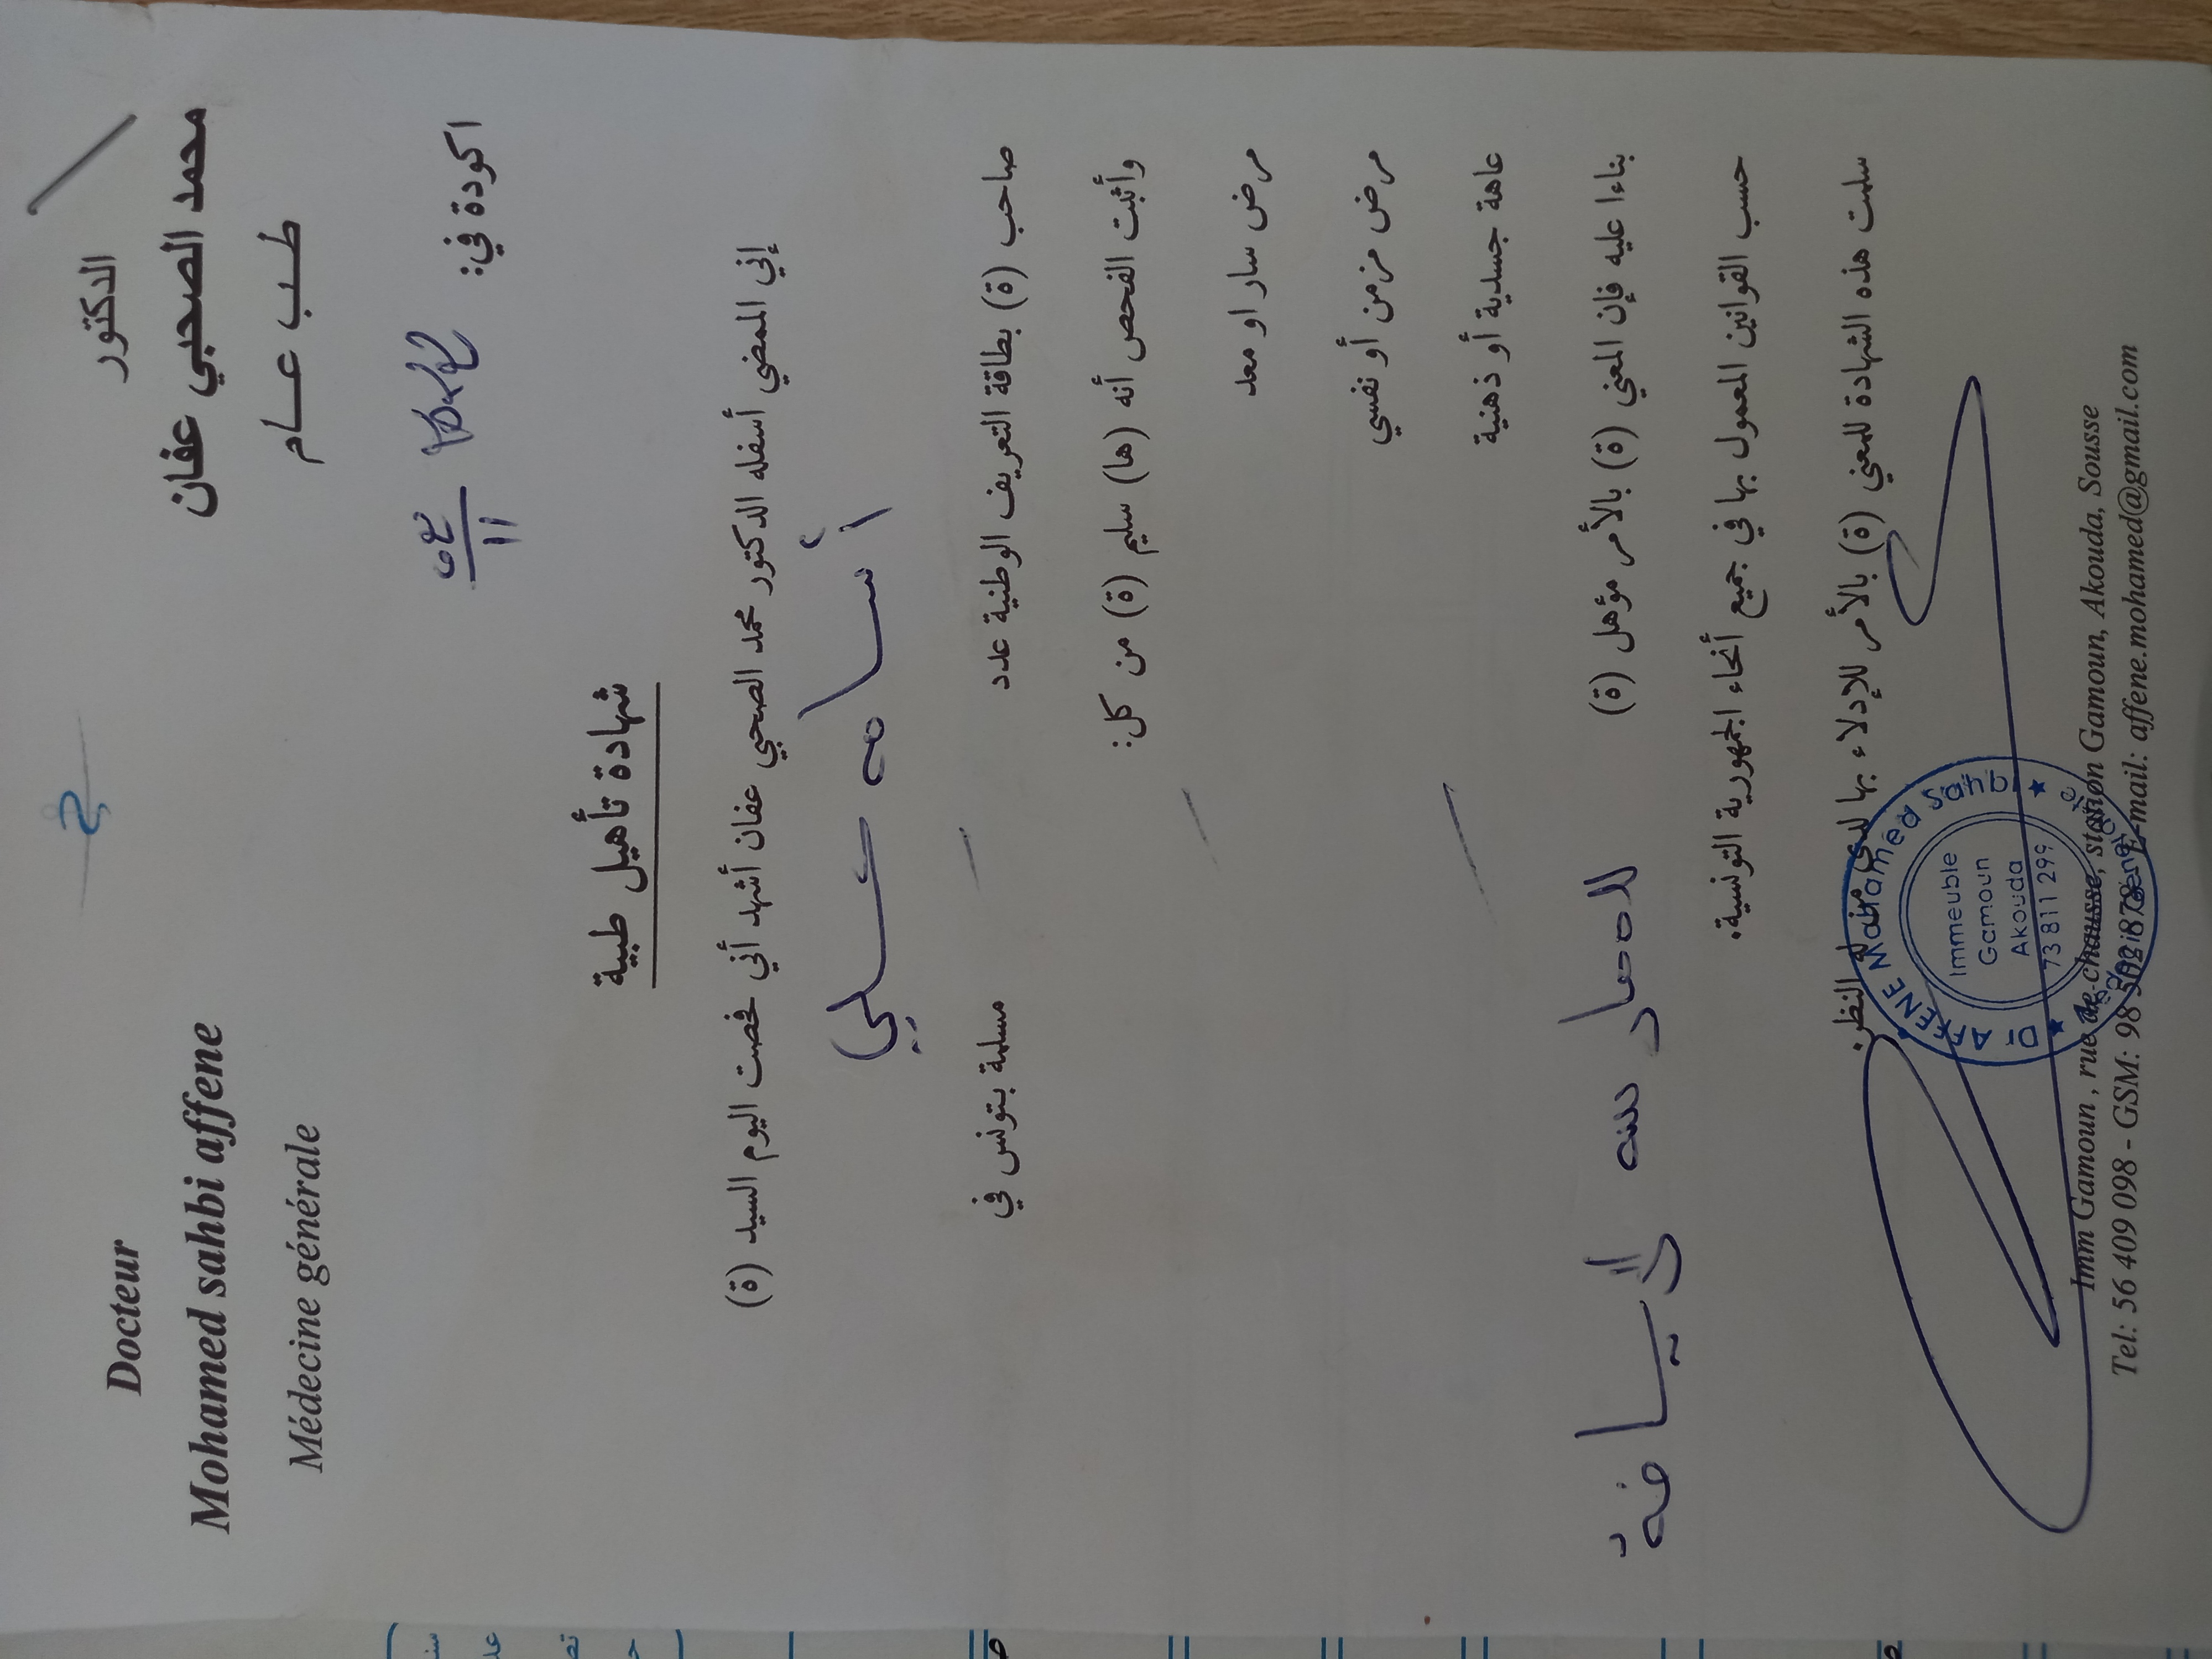 الدكتور
محمد الصحبي عفان
طب عام
Docteur
Mohamed sahbi affene
Médecine générale
اكودة في:
شهادة تأهيل طبية
إني الممضي أسفله الدكتور محمد الصحبي عفان أشهد أني فحصت اليوم السيد (ة)
أسامه
صاحب (ة) بطاقة التعريف الوطنية عدد مسلمة بتونس في
وأثبت الفحص أنه (ها) سليم (ة) من كل:
مرض سار او معد
مرض مزمن أو نفسي
عاهة جسدية أو ذهنية
بناءا عليه فإن المعني (ة) بالأمر مؤهل (ة)
حسب القوانين المعمول بها في جميع أنحاء الجمهورية التونسية.
سلمت هذه الشهادة للمعني (ة) بالأمر للإدلاء بها لدى من له النظر.
Immeuble
Gamoun
Akouda
73 811 299
Imm Gamoun , rue de chausse, station Gamoun, Akouda, Sousse
Tel: 56 409 098 - GSM: 98 E-mail: affene.mohamed@gmail.com